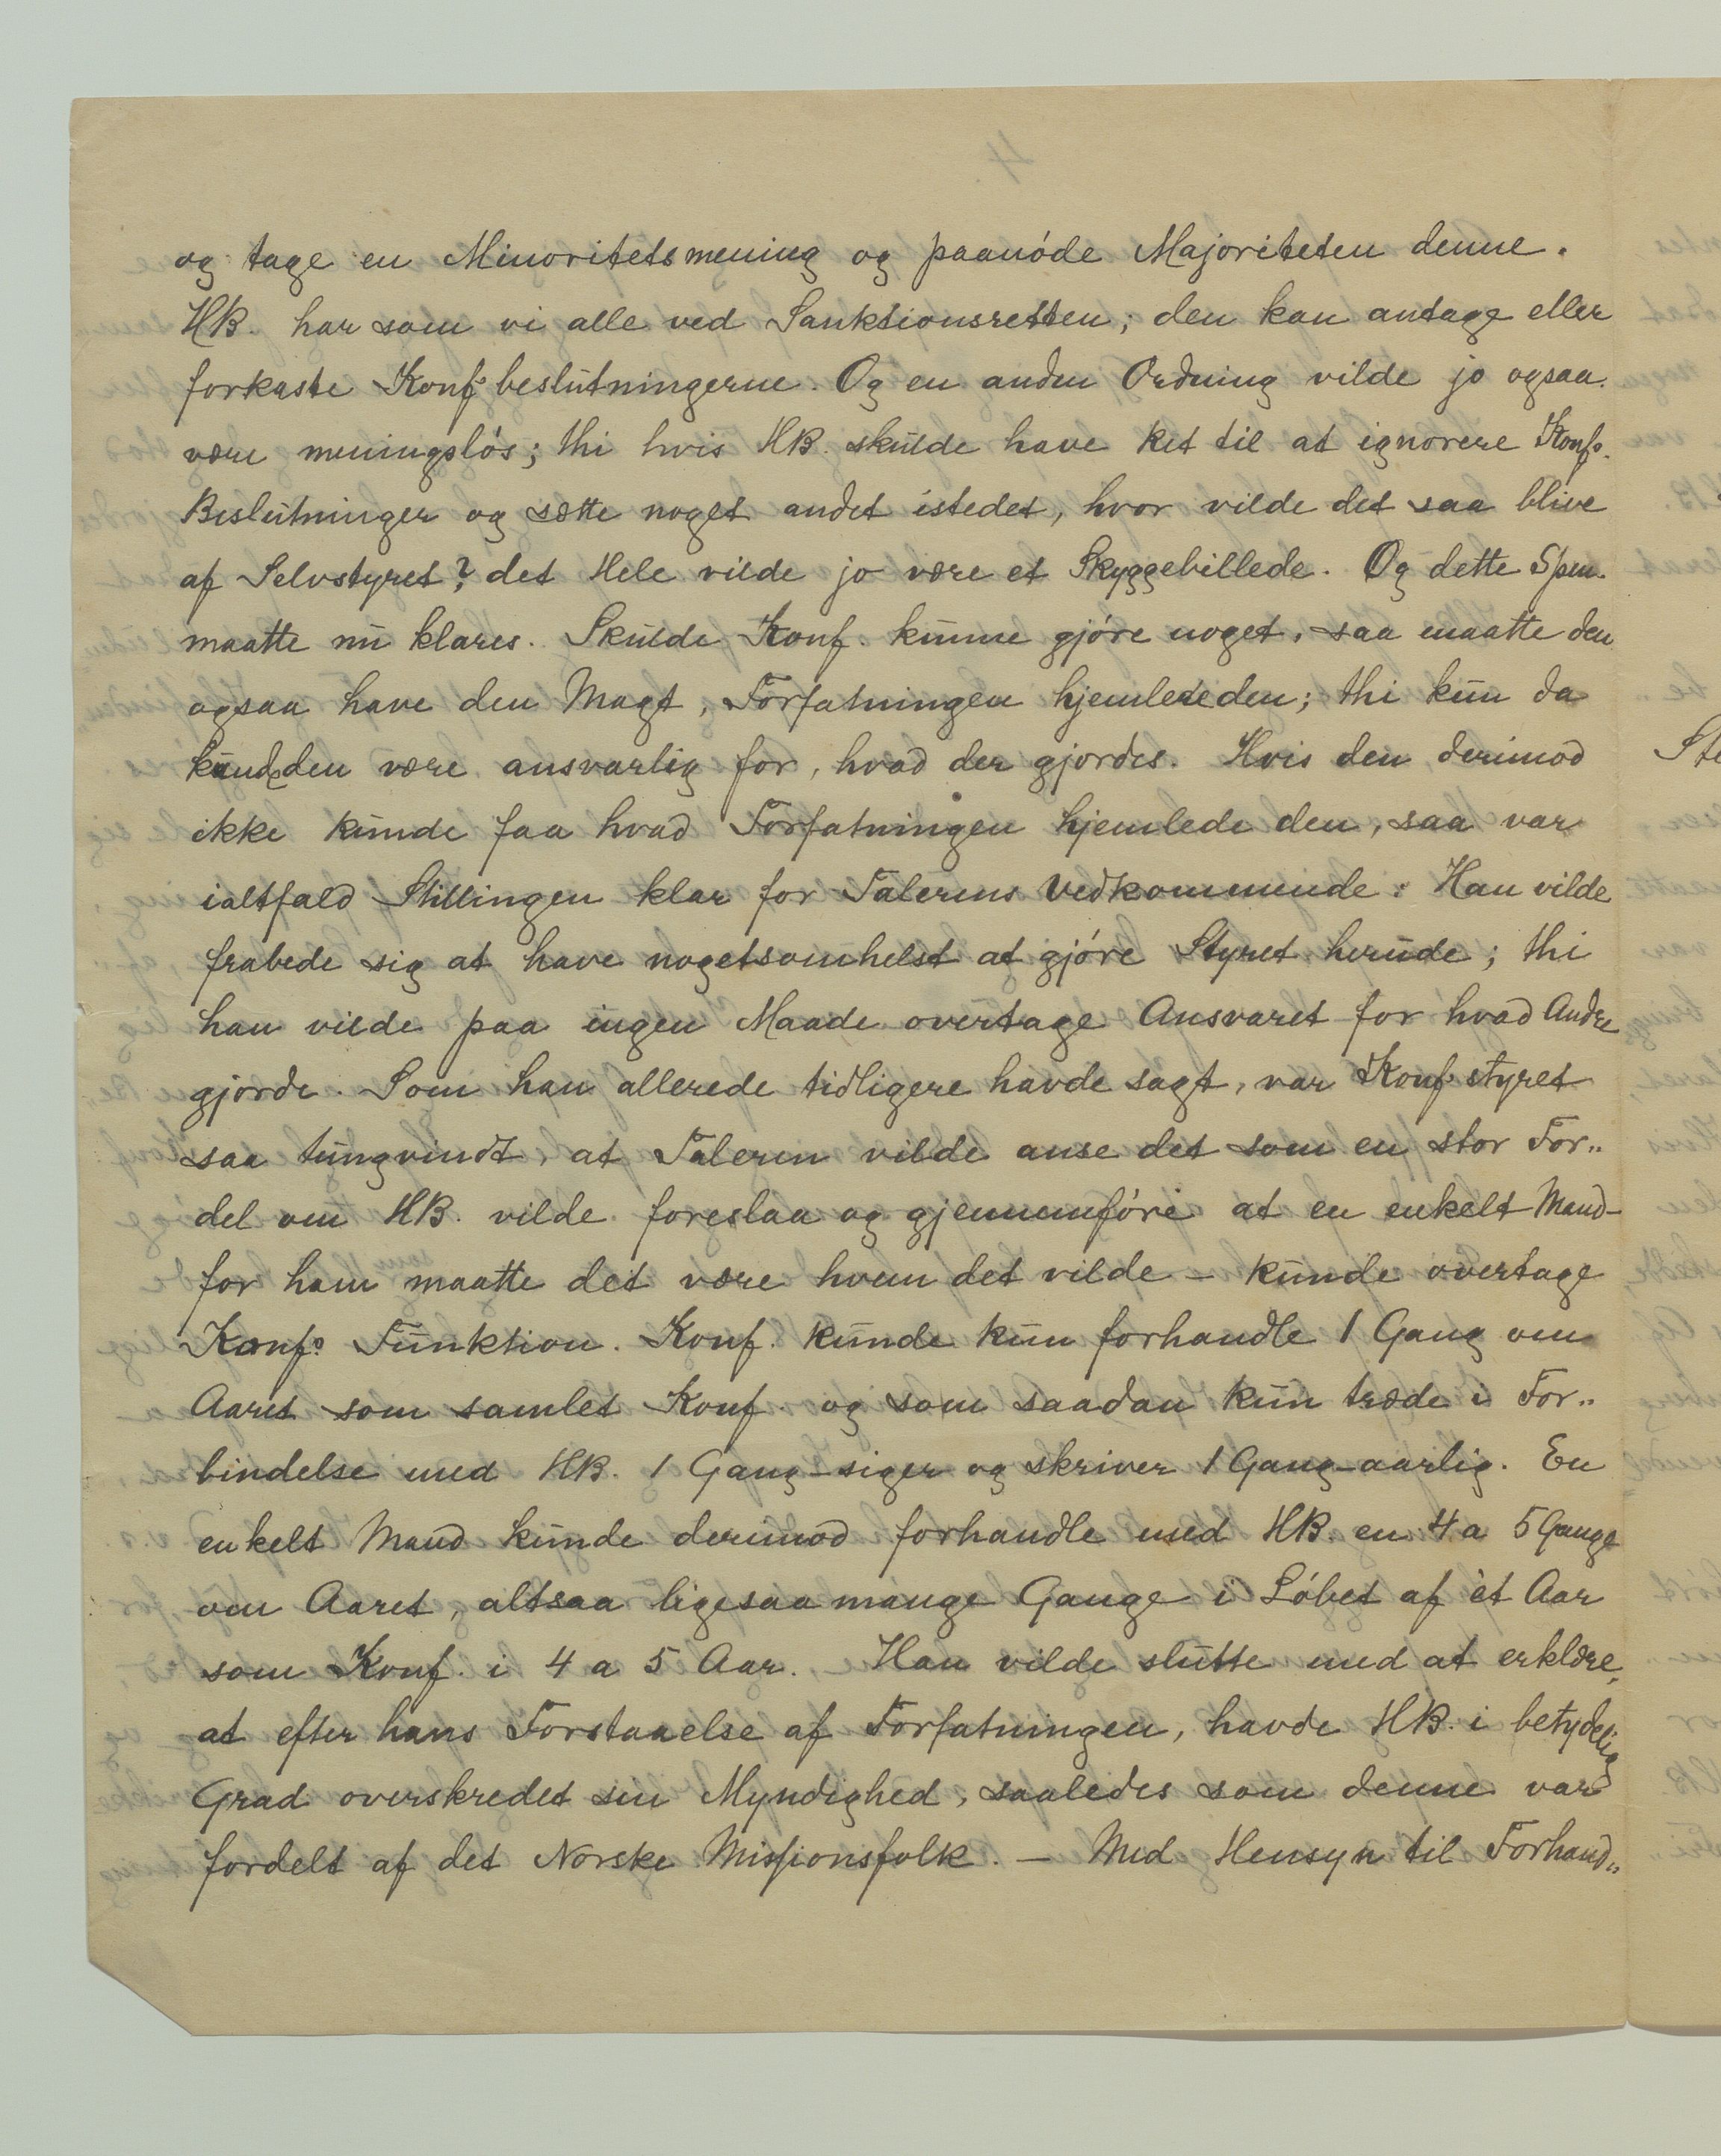 og tage en Minoritetsmening og paanóde Majoriteten denne.
HB. har som vi alle ved Sanktionsretten; den kan antage eller
forkaste Konf.beslutningerne. Og en anden Ordning vilde jo ogsaa
være meningslós; thi hvis HB. skulde have Ret til at ignorere Konfs.
Beslutninger og sætte noget andet istedet, hvor vilde det saa blive
af Selvstyret? det Hele vilde jo være et Skyggebillede. Og dette Spm.
maatte nu klares. Skulde Konf. kunne gjóre noget, saa maatte den
ogsaa have den Magt, Forfatningen hjemlede den; thi kun da
kunde den være ansvarlig for, hvad der gjordes. Hvis den derimod
ikke kunde faa hvad Forfatningen hjemlede den, saa var
ialtfald Stillingen klar for Talerens Vedkommende: Han vilde
frabede sig at have nogetsomhelst at gjóre Styret herude; thi
han vilde paa ingen Maade overtage Ansvaret for hvad Andre
gjorde. Som han allerede tidligere havde sagt, var Konf.styret
saa tungvindt, at Taleren vilde anse det som en stor For„
del om HB. vilde foreslaa og gjennemfóre at en enkelt Mand –
for ham maatte det være hvem det vilde – kunde overtage
Konfs. Funktion. Konf. kunde kun forhandle 1 Gang om
Aaret som samlet Konf. og som saadan kun træde i For„
bindelse med HB. 1 Gang – siger og skriver 1 Gang – aarlig. En
enkelt Mand kunde derimod forhandle med HB. en 4 a 5 Gange
om Aaret, altsaa ligesaa mange Gange i Lóbet af èt Aar
som Konf. i 4 a 5 Aar. Han vilde slutte med at erklære,
at efter hans Forstaaelse af Forfatningen, havde HB. i betydelig
Grad overskredet sin Myndighed, saaledes som denne var
fordelt af det Norske Missionsfolk. – Med Hensyn til Forhand„